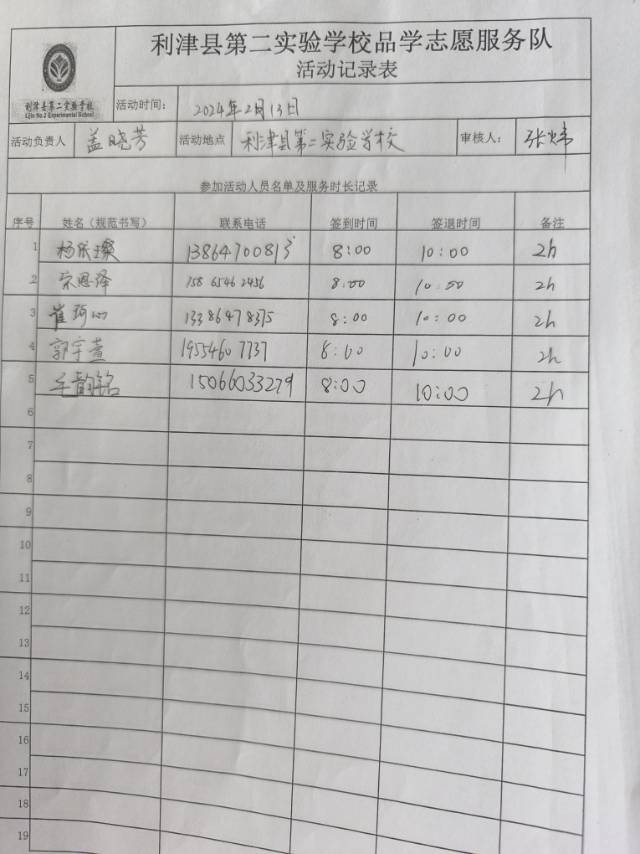 利津县第二实验学校品学志愿服务队
活动记录表
利津县第二实验学校
Lijin No.2 Experimental School
活动时间： 2024年2月13日
活动负责人 盖晓芳 活动地点 利津县第二实验学校 审核人： 张炜
参加活动人员名单及服务时长记录
序号 姓名（规范书写） 联系电话 签到时间 签退时间 备注
1 杨依璨 13864700813 8:00 10:00 2h
2 宋恩泽 158 6546 2456 8:00 10:00 2h
3 崔珂心 13386478375 8:00 10:00 2h
4 郭宇萱 19554607737 8:00 10:00 2h
5 毛韵铭 15066033279 8:00 10:00 2h
6
7
8
9
10
11
12
13
14
15
16
17
18
19